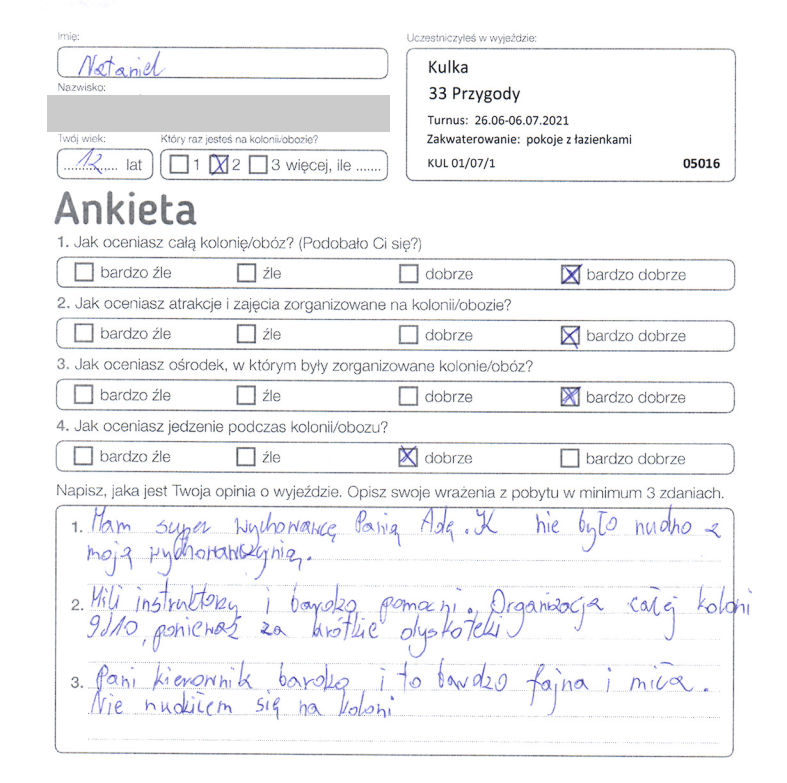 Imię:
Nataniel
Nazwisko:
Twój wiek:
12 lat
Który raz jesteś na kolonii/obozie?
1 2 3 więcej, ile .......
Uczestniczyłeś w wyjeździe:
Kulka
33 Przygody
Turnus: 26.06-06.07.2021
Zakwaterowanie: pokoje z łazienkami
KUL 01/07/1 05016
Ankieta
1. Jak oceniasz całą kolonię/obóz? (Podobało Ci się?)
bardzo źle źle dobrze bardzo dobrze
2. Jak oceniasz atrakcje i zajęcia zorganizowane na kolonii/obozie?
bardzo źle źle dobrze bardzo dobrze
3. Jak oceniasz ośrodek, w którym były zorganizowane kolonie/obóz?
bardzo źle źle dobrze bardzo dobrze
4. Jak oceniasz jedzenie podczas kolonii/obozu?
bardzo źle źle dobrze bardzo dobrze
Napisz, jaka jest Twoja opinia o wyjeździe. Opisz swoje wrażenia z pobytu w minimum 3 zdaniach.
1. Mam super wychowawcę Panią Adę.K nie było nudno z
moją wychowawczynią.
2. Mili instruktorzy i bardzo pomocni. Organizacja całej koloni
9/10, ponieważ za krótkie dyskoteki
3. Pani kierownik bardzo i to bardzo fajna i miła.
Nie nudziłem się na koloni